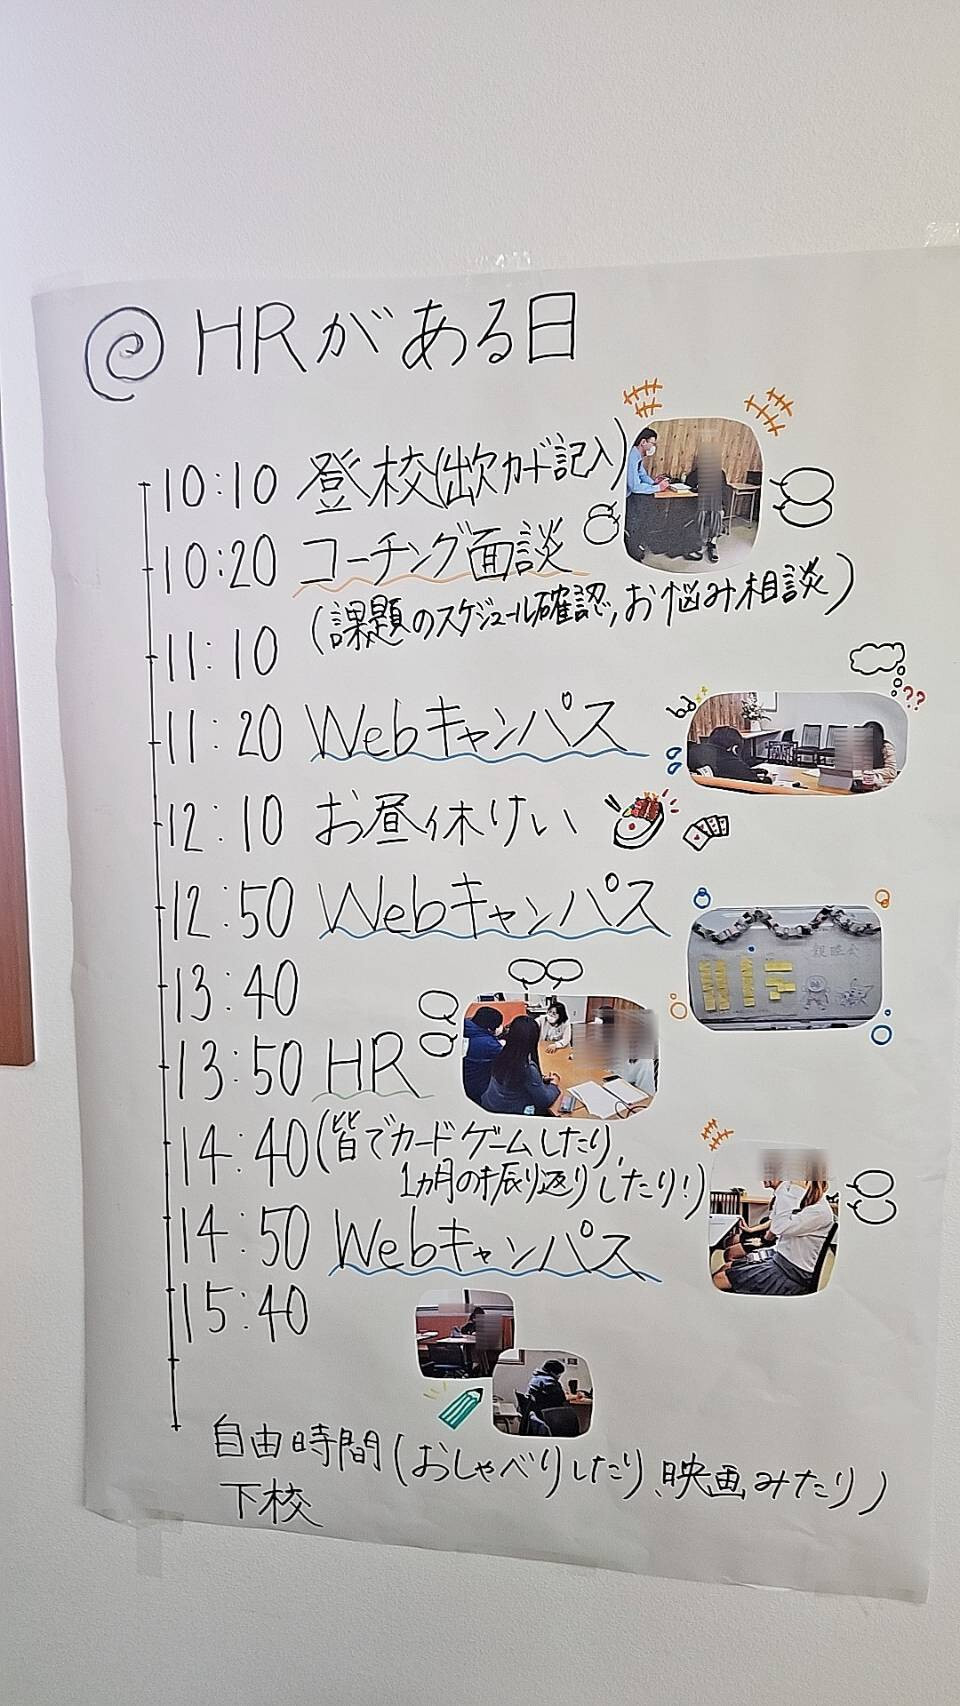 HRがある日
10:10 登校(出欠カード記入)
10:20 コーチング面談
(課題のスケジュール確認, お悩み相談)
11:10
11:20 Webキャンパス
12:10 お昼休けい
12:50 Webキャンパス
親睦会
13:40
13:50 HR
14:40 (皆でカードゲームしたり,
1ヵ月の振り返りしたり!)
14:50 Webキャンパス
15:40
自由時間(おしゃべりしたり、映画みたり)
下校